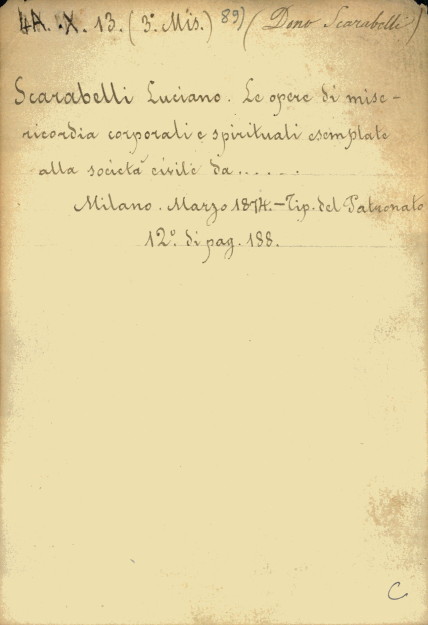 4A. .X. 13. (3.° Mis.) 89) (Dono Scarabelli)
Scarabelli Luciano. Le opere di mise-
ricordia corporali e spirituali esemplate
alla società civile da.....
Milano. Marzo 1874.-Tip. del Patronato
12.° di pag. 188.
C